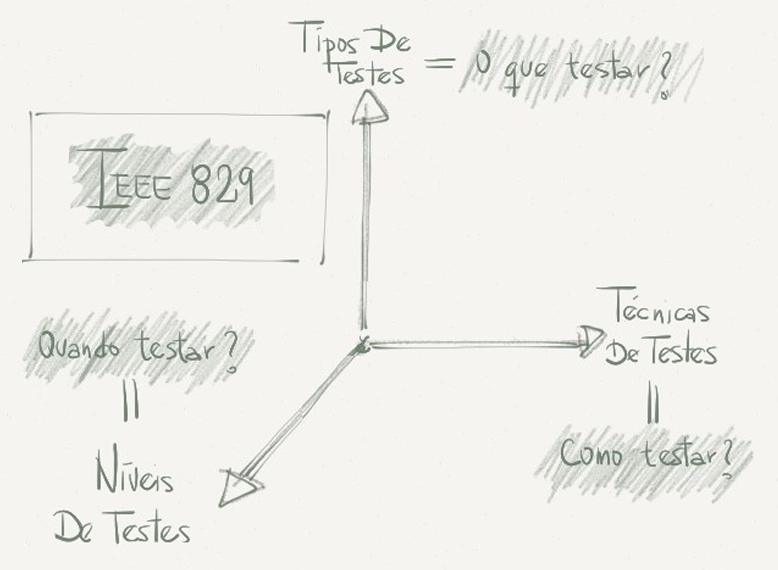 Tipos De
Testes = O que testar?
IEEE 829
Quando testar?
=
Níveis
De Testes
Técnicas
De Testes
=
Como testar?